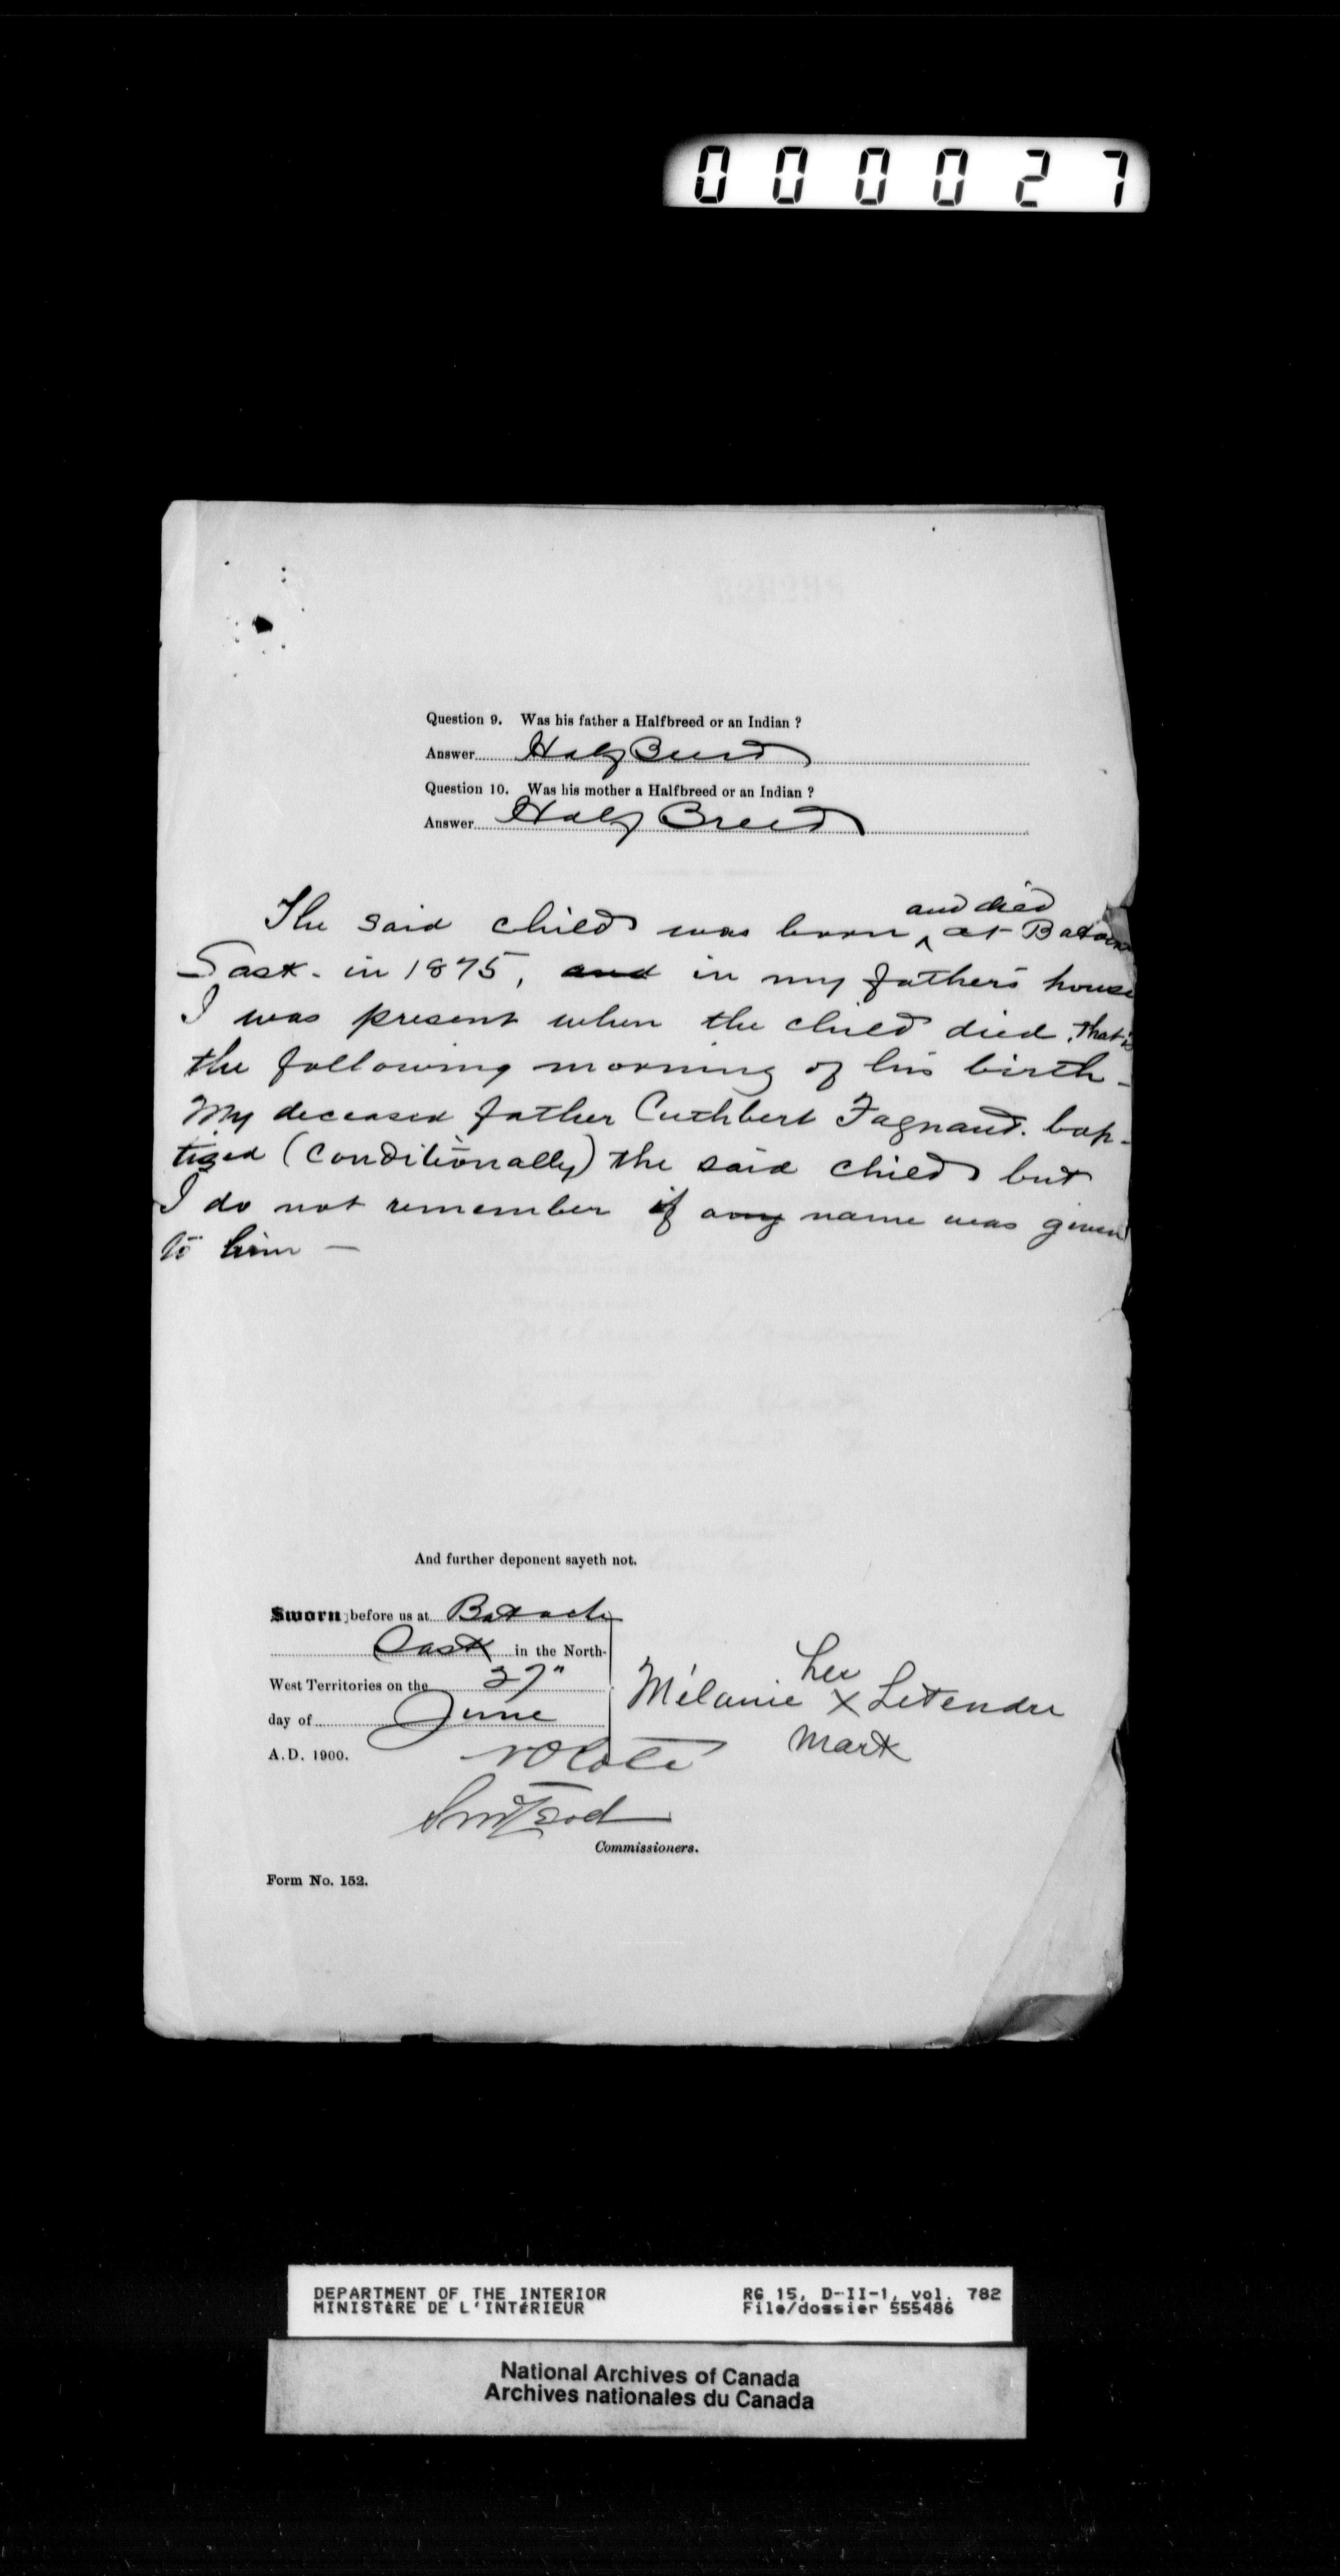 000027
Question 9. Was his father a Halfbreed or an Indian ?
Answer Half Breed
Question 10. Was his mother a Halfbreed or an Indian ?
Answer Half Breed
and died
The said child was born ^ at Batoche
Sask. in 1875, and in my father's house
I was present when the child died, that is
the following morning of his birth -
My deceased father Cuthbert Fagnand. bap-
tized (conditionally) the said child but
I do not remember if any name was given
to him —
And further deponent sayeth not.
Sworn before us at Batoche
Sask in the North-
West Territories on the 27"
day of June
A.D. 1900.
her
Mélanie X Letendre
mark
Commissioners.
Form No. 152.
DEPARTMENT OF THE INTERIOR
MINISTÈRE DE L'INTÉRIEUR
RG 15, D-II-1, vol. 782
File/dossier 555486
National Archives of Canada
Archives nationales du Canada